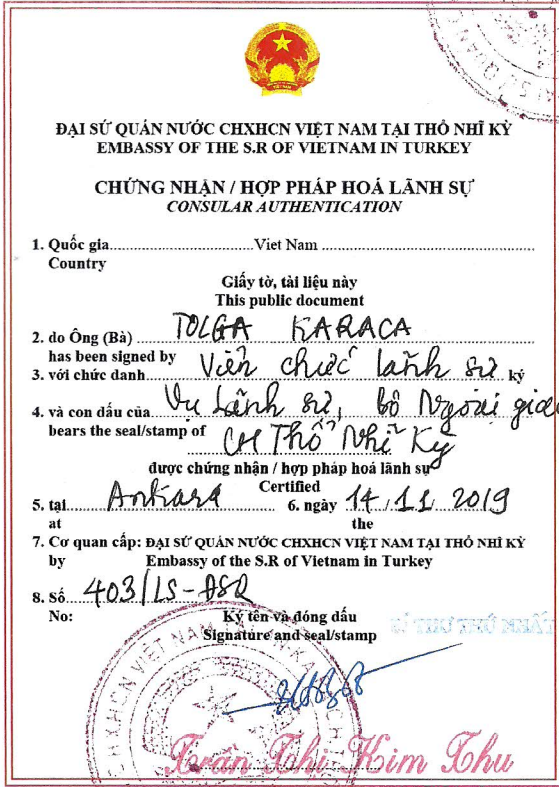 ĐẠI SỨ QUÁN NƯỚC CHXHCN VIỆT NAM TẠI THỔ NHĨ KỲ
EMBASSY OF THE S.R OF VIETNAM IN TURKEY
CHỨNG NHẬN / HỢP PHÁP HOÁ LÃNH SỰ
CONSULAR AUTHENTICATION
1. Quốc gia..............Viet Nam..............
Country
Giấy tờ, tài liệu này
This public document
2. do Ông (Bà) TOLGA KARACA
has been signed by
3. với chức danh Viên chức lãnh sự ký
4. và con dấu của Vụ Lãnh sự, bộ Ngoại giao
bears the seal/stamp of CH Thổ Nhĩ Kỳ
được chứng nhận / hợp pháp hoá lãnh sự
Certified
5. tại Ankara 6. ngày 14.11.2019
at the
7. Cơ quan cấp: ĐẠI SỨ QUÁN NƯỚC CHXHCN VIỆT NAM TẠI THỔ NHĨ KỲ
by Embassy of the S.R of Vietnam in Turkey
8. Số 403/LS-ĐSQ
No: Ký tên và đóng dấu
Signature and seal/stamp
Trần Thị Kim Thu